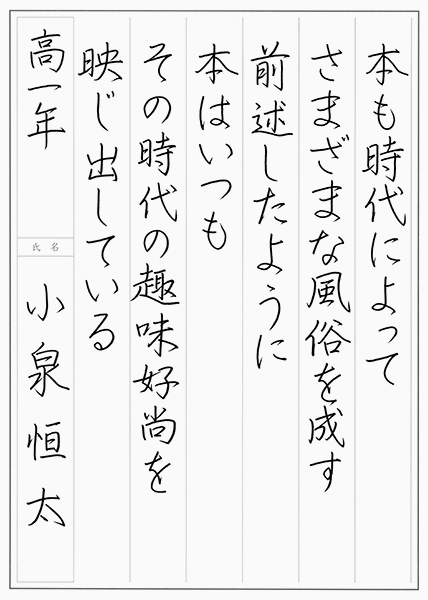 本も時代によって
さまざまな風俗を成す
前述したように
本はいつも
その時代の趣味好尚を
映じ出している
高一年
氏名
小泉恒太